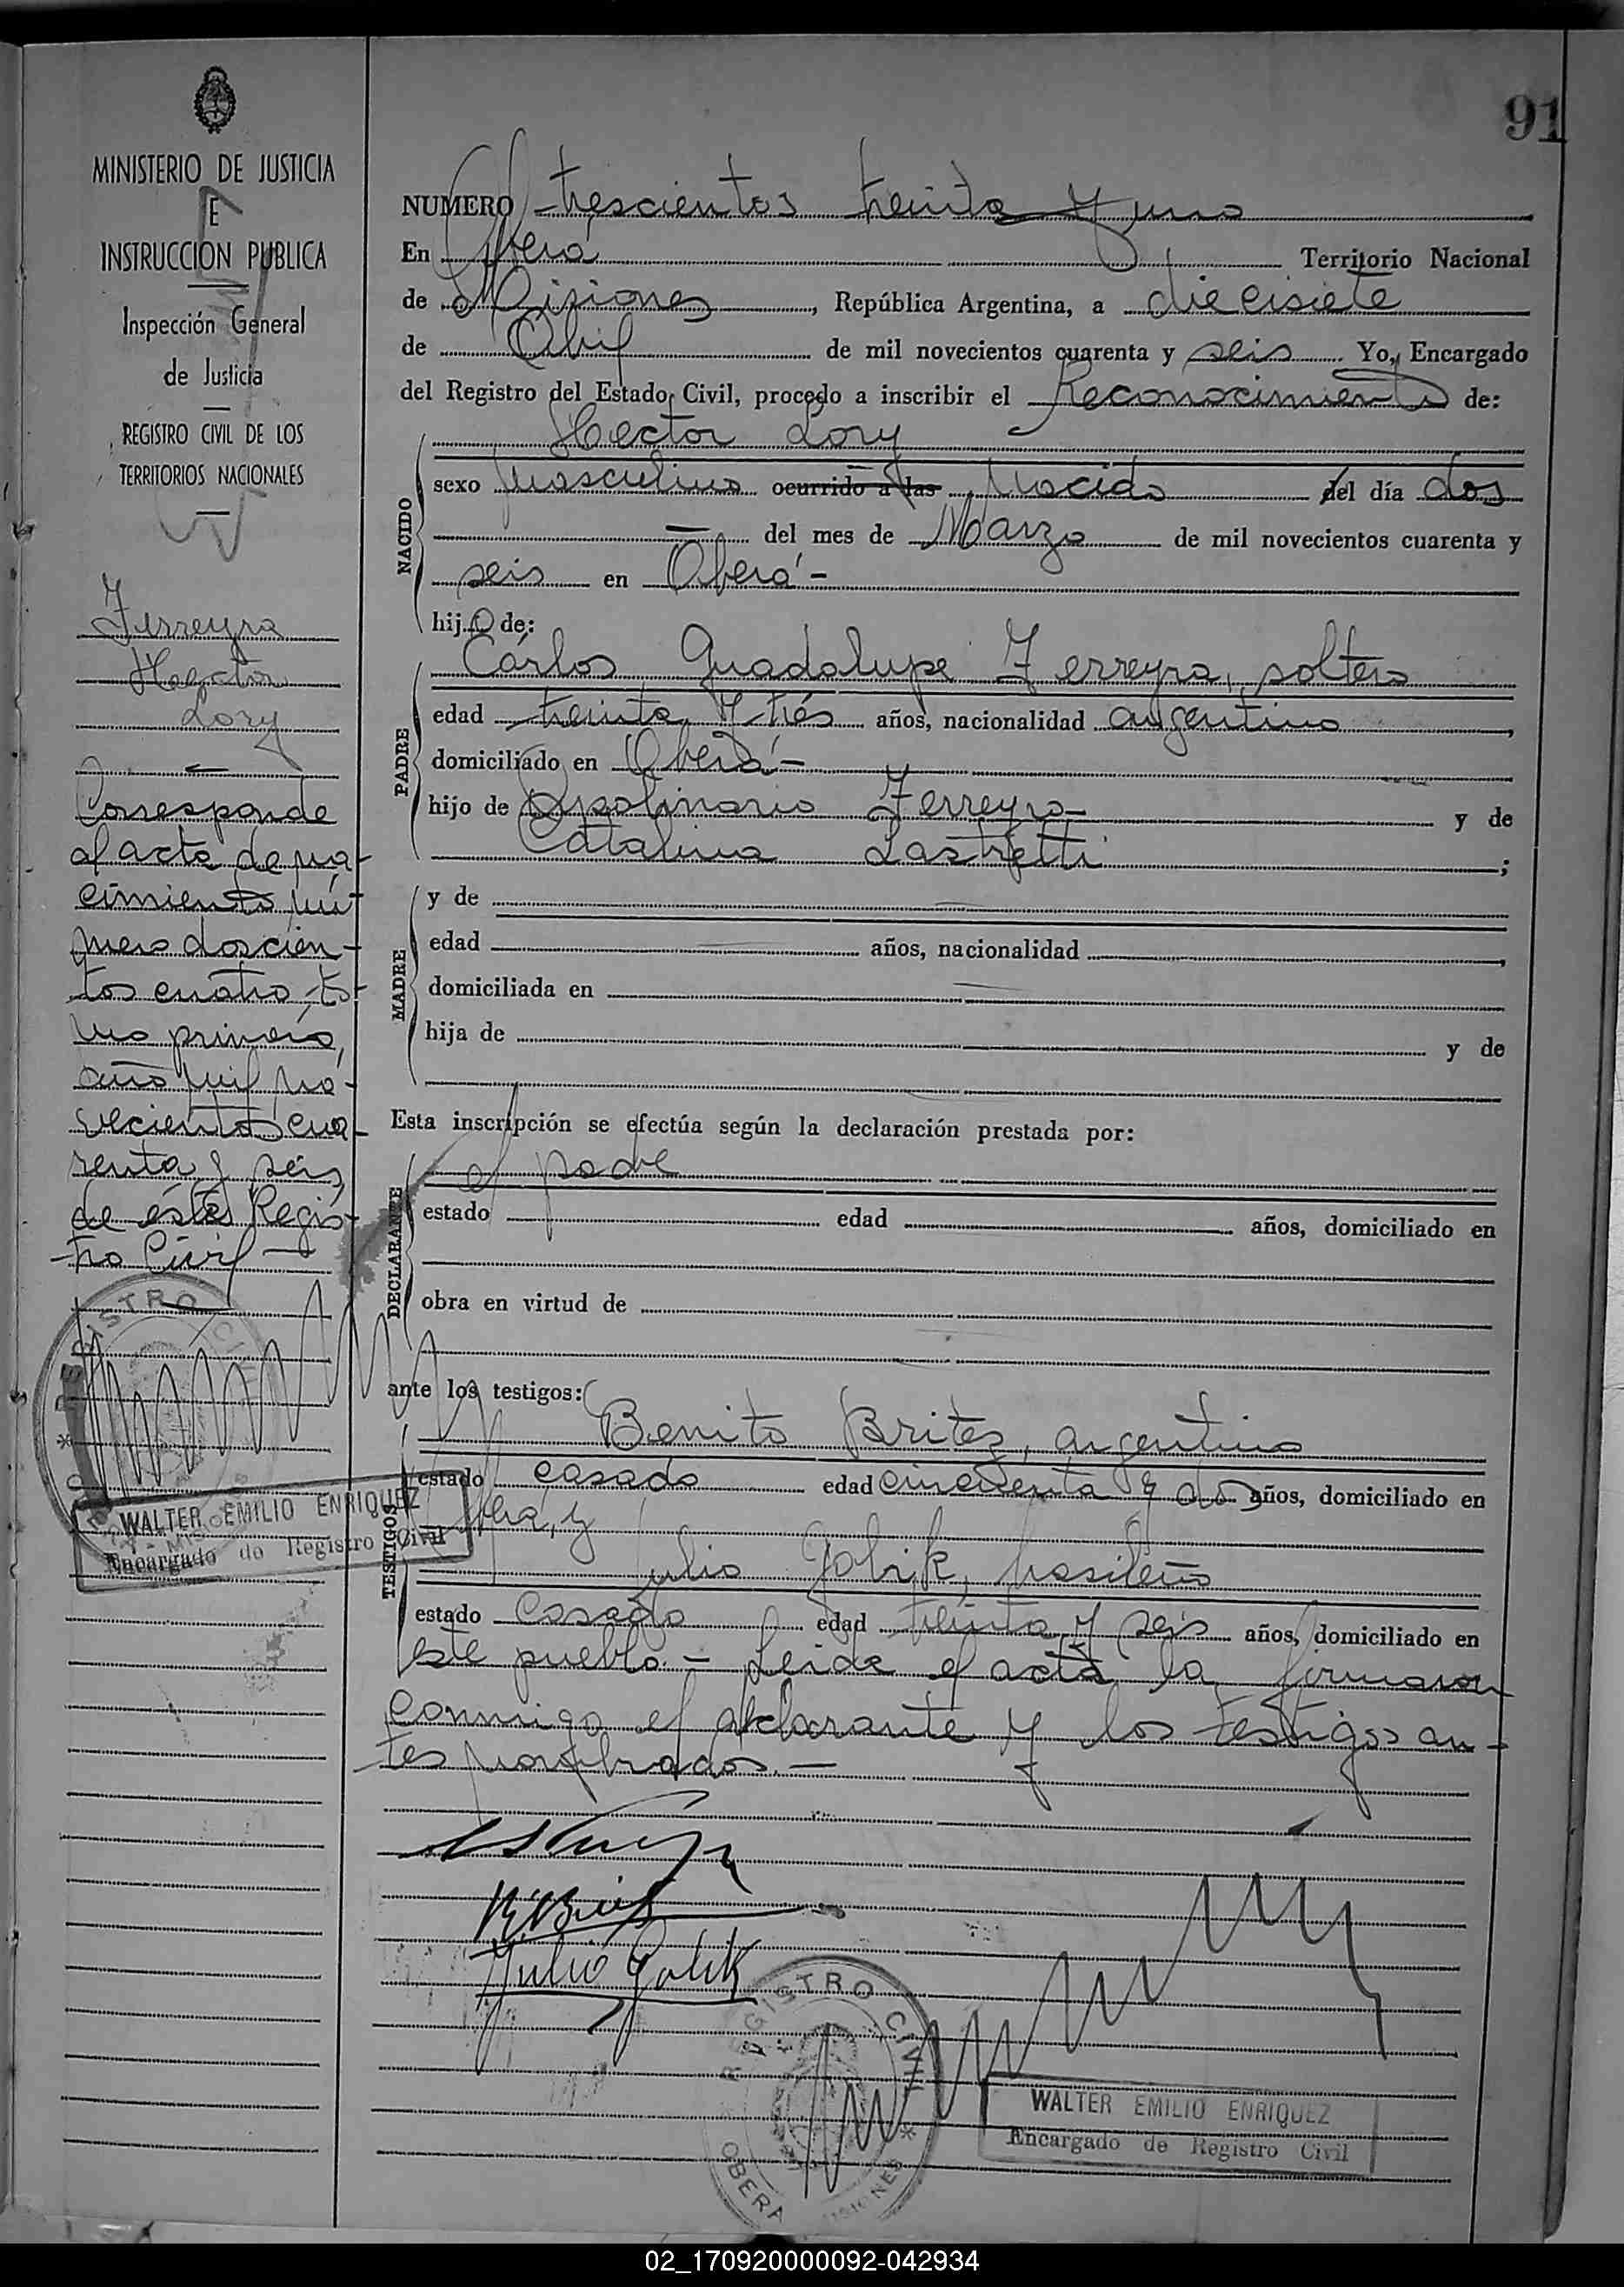 91
MINISTERIO DE JUSTICIA
E
INSTRUCCION PUBLICA
Inspección General
de Justicia
REGISTRO CIVIL DE LOS
TERRITORIOS NACIONALES
Ferreyra
Hector
Lory
Corresponde
al acta de na-
cimiento nú-
mero doscien-
tos cuatro, to-
mo primero,
año mil no-
vecientos cua-
renta y seis,
de éste Regis-
tro Civil
REGISTRO CIVIL
WALTER EMILIO ENRIQUEZ
Encargado de Registro Civil
NUMERO trescientos treinta y uno
En Oberá Territorio Nacional
de Misiones, República Argentina, a diecisiete
de Abril de mil novecientos cuarenta y seis Yo, Encargado
del Registro del Estado Civil, procedo a inscribir el Reconocimiento de:
Hector Lory
NACIDO
sexo masculino ocurrido a las Nacido el día dos
del mes de Marzo de mil novecientos cuarenta y
seis en Oberá -
hijo de:
PADRE
Cárlos Guadalupe Ferreyra, soltero
edad treinta y trés años, nacionalidad argentino,
domiciliado en Oberá -
hijo de Apolinario Ferreyra y de
Catalina Lastretti ;
MADRE
y de
edad años, nacionalidad ,
domiciliada en
hija de y de
Esta inscripción se efectúa según la declaración prestada por:
DECLARANTE
el padre
estado edad años, domiciliado en
obra en virtud de
ante los testigos:
TESTIGOS
Benito Britez, argentino
estado casado edad cincuenta y dos años, domiciliado en
Oberá, y
Julio Golik, brasileño
estado casado edad treinta y seis años, domiciliado en
este pueblo. - Leida el acta la firmaron
conmigo el declarante y los testigos an-
tes nombrados. -
Julio Golik
REGISTRO CIVIL
OBERA * MISIONES
WALTER EMILIO ENRIQUEZ
Encargado de Registro Civil
02_170920000092-042934